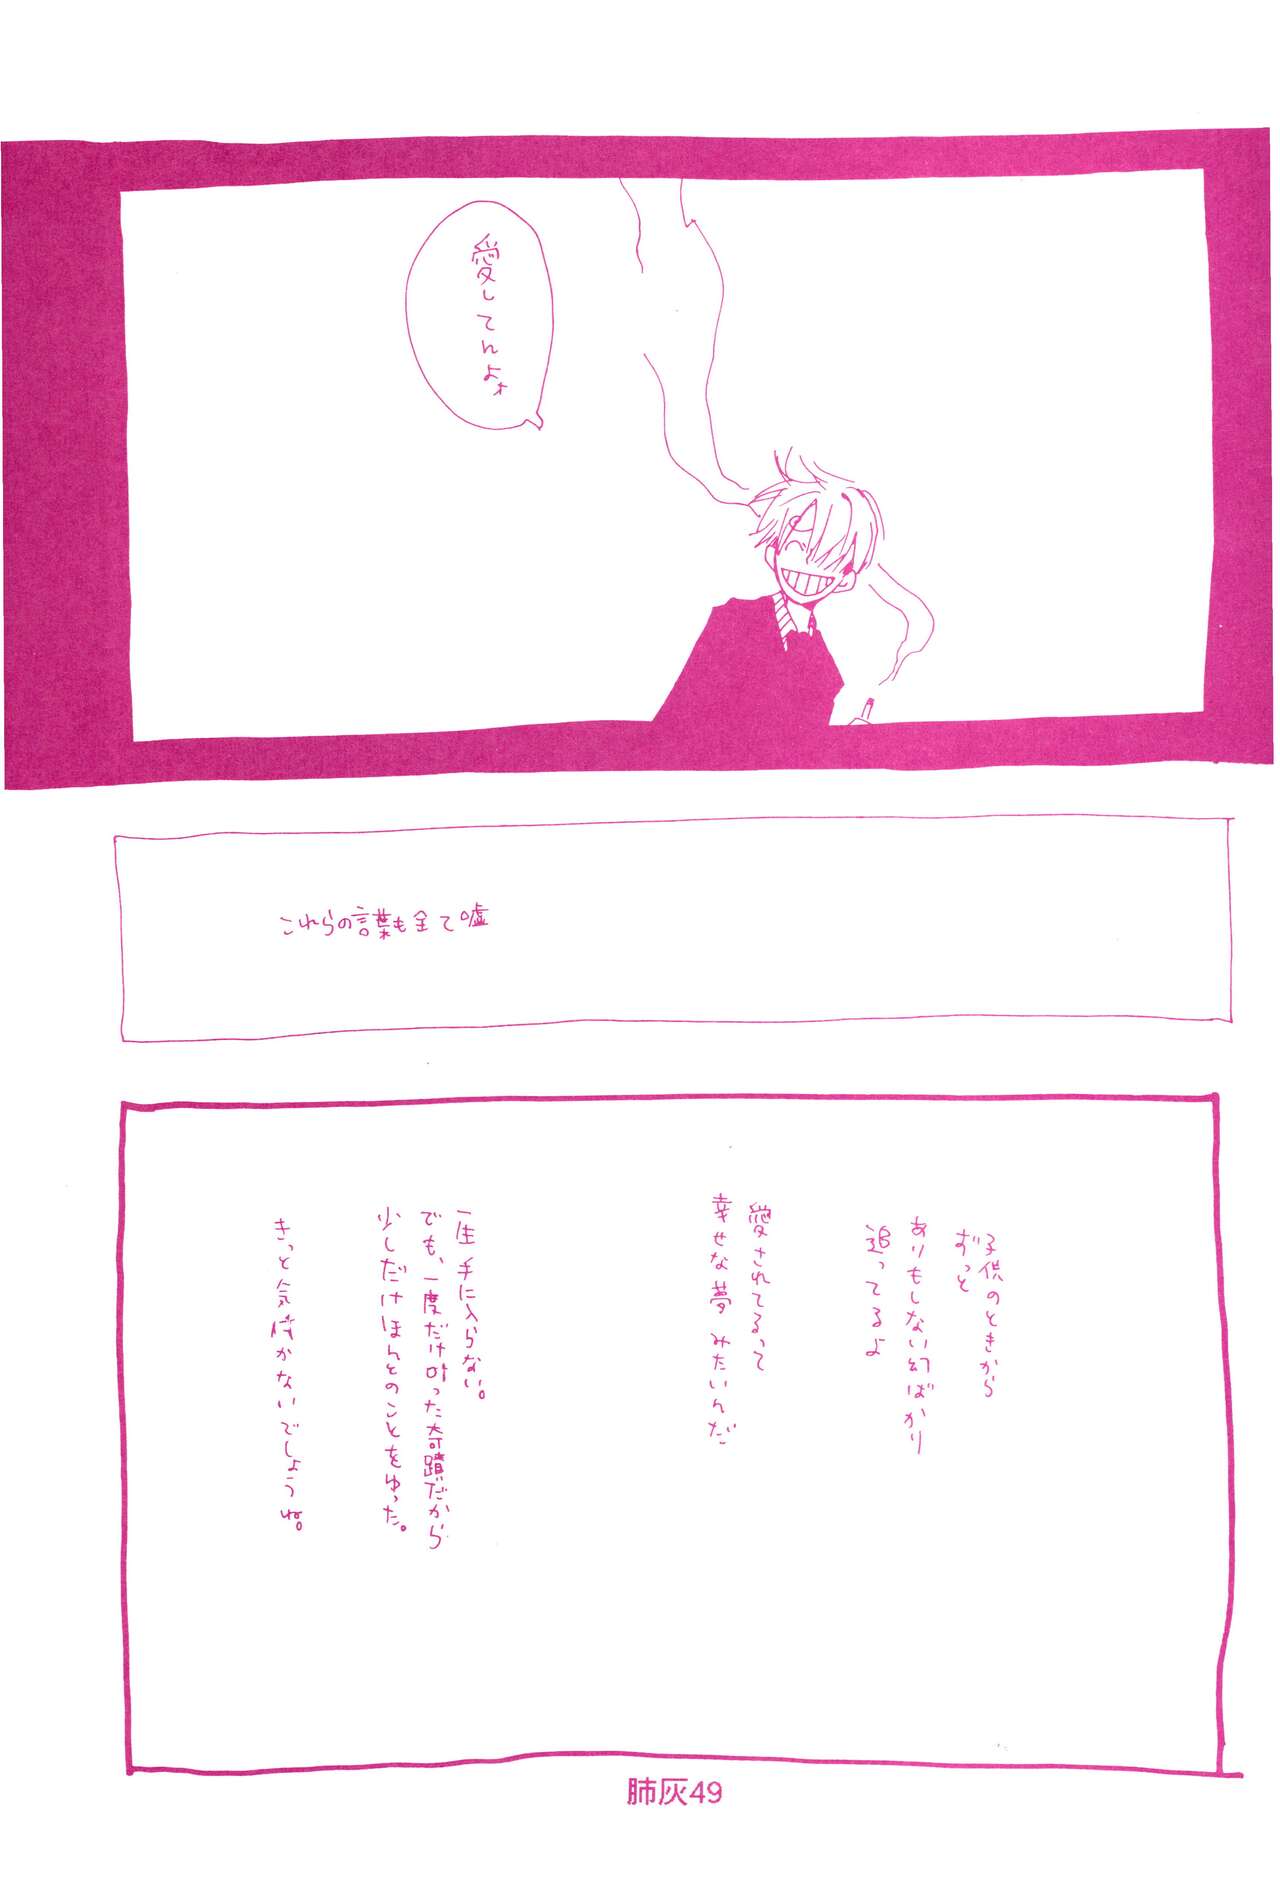 愛してんよォ
これらの言葉も全て嘘
子供のときから
ずっと
ありもしない幻ばかり
追ってるよ
愛されてるって
幸せな夢みたいんだ
一生手に入らない。
でも、一度だけ叶った奇蹟だから
少しだけほんとのことをゆった。
きっと気付かないでしょうね。
肺灰49